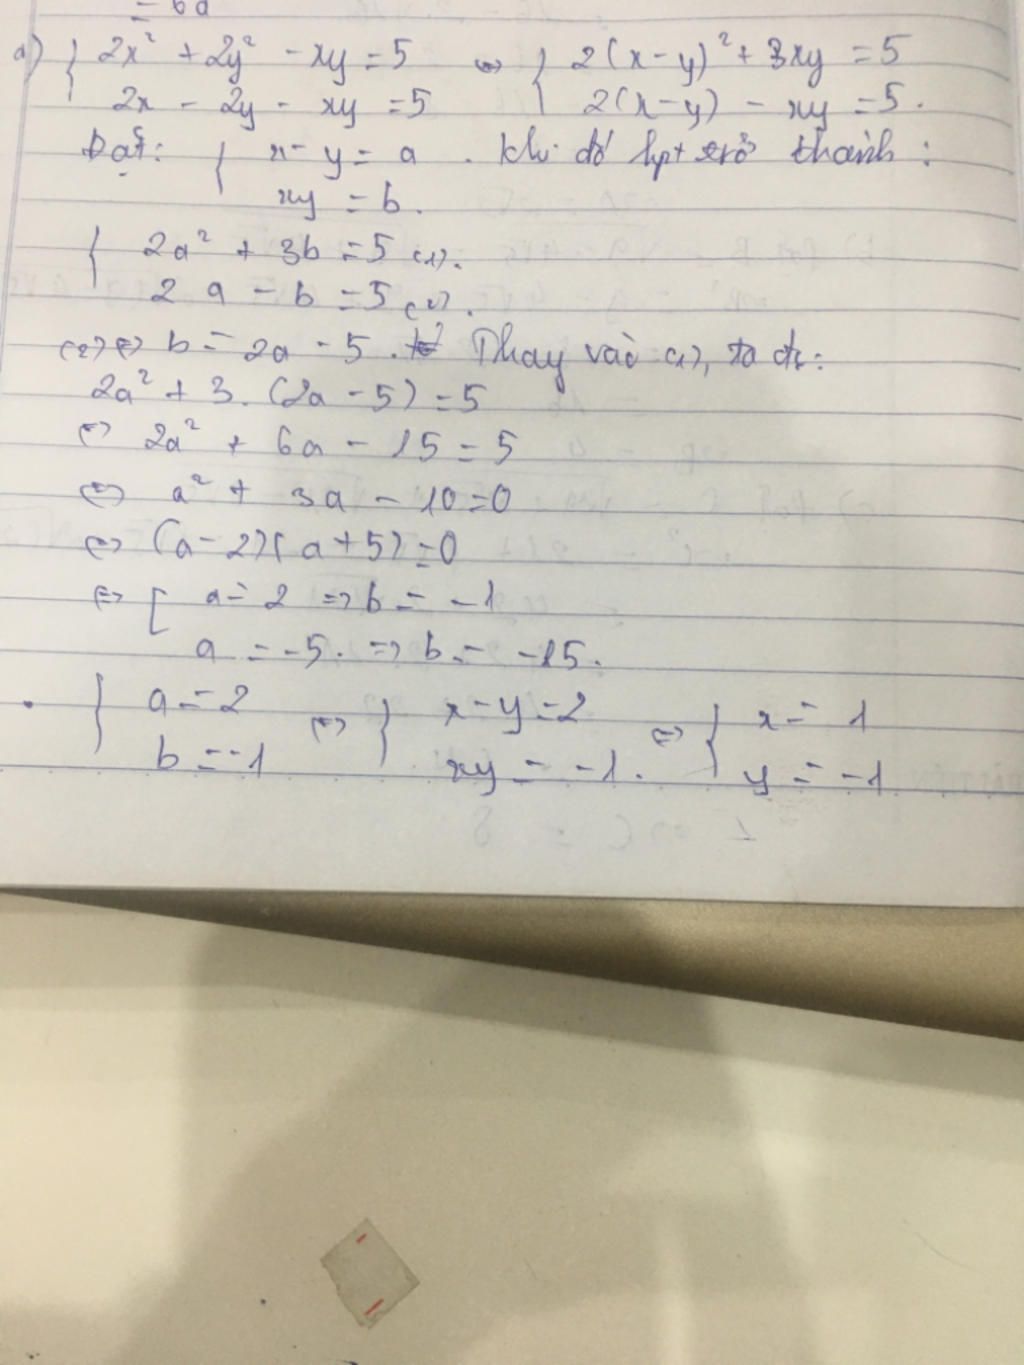 = 6a
a) { 2x² + 2y² - xy = 5 <=> { 2(x-y)² + 3xy = 5
2x - 2y - xy = 5 2(x-y) - xy = 5.
Đặt: { x - y = a . Khi đó hpt trở thành :
xy = b.
{ 2a² + 3b = 5 (1).
2a - b = 5 (2).
(2) <=> b = 2a - 5. Thay vào (1), ta đc:
2a² + 3.(2a - 5) = 5
<=> 2a² + 6a - 15 = 5
<=> a² + 3a - 10 = 0
<=> (a - 2)(a + 5) = 0
<=> [ a = 2 => b = -1
a = -5. => b = -15.
. { a = 2 <=> { x - y = 2 <=> { x = 1
b = -1 xy = -1. y = -1